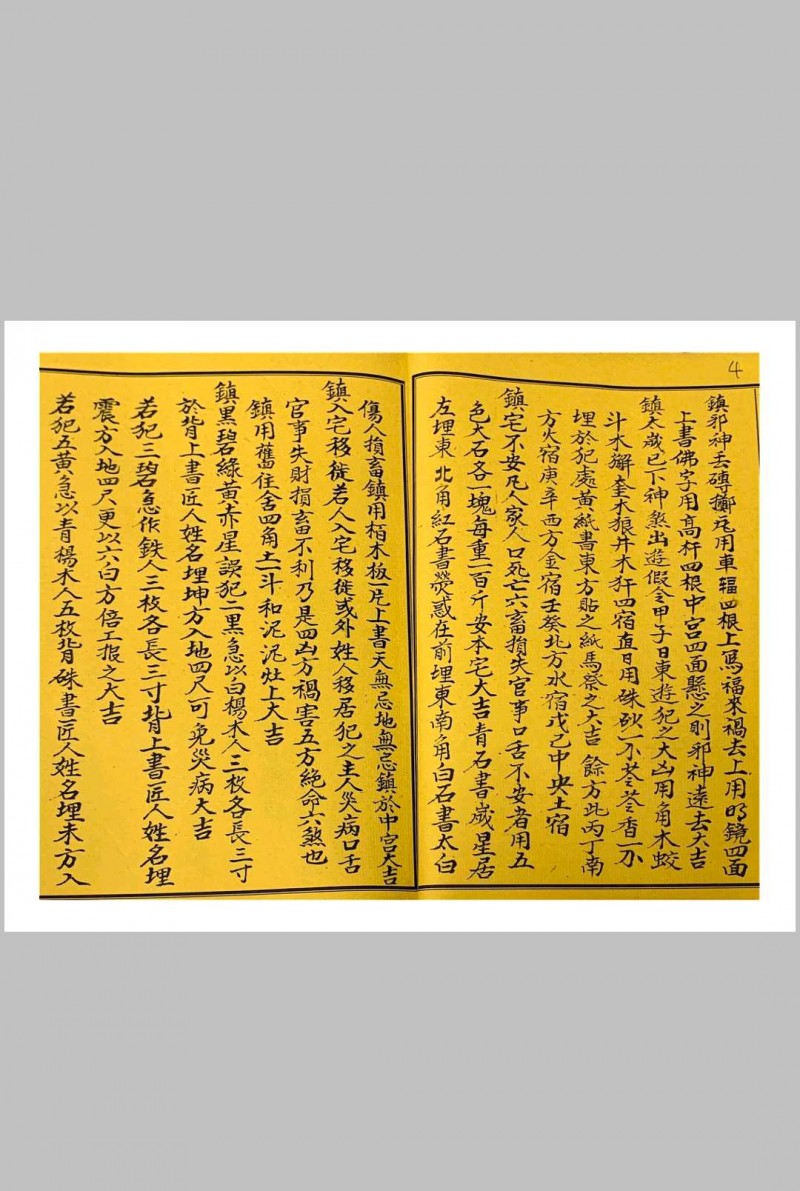 4
鎮邪神丢磚擲瓦用車辐四根上寫福來禍去上用明鏡四面
上書佛字用高杆四根中宫四面懸之則邪神遠去大吉
鎮太歲已下神煞出遊假令甲子日東遊犯之大凶用角木蛟
斗木獬奎木狼井木犴四宿直日用硃砂一不苍苍香一不
埋於犯處黄紙書東方貼之紙馬祭之大吉 餘方此丙丁南
方火宿庚辛西方金宿壬癸北方水宿戊己中央土宿
鎮宅不安凡人家人口死亡六畜損失官事口舌不安者用五
色大石各一塊每重一百斤安本宅大吉青石書歲星居
左埋東北角紅石書熒惑在前埋東南角白石書太白
傷人損畜鎮用栢木板一片上書天無忌地無忌鎮於中宫大吉
鎮入宅移徙若人入宅移徙或外姓人移居犯之主人災病口舌
官事失財損畜不利乃是四凶方禍害五方絶命六煞也
鎮用舊住舍四角土一斗和泥泥灶上大吉
鎮黒碧綠黄赤星誤犯二黒急以白楊木人三枚各長三寸
於背上書匠人姓名埋坤方入地四尺可免災病大吉
若犯三碧急作鉄人三枚各長三寸背上書匠人姓名埋
震方入地四尺更以六白方倍工报之大吉
若犯五黄急以青楊木人五枚背硃書匠人姓名埋未方入